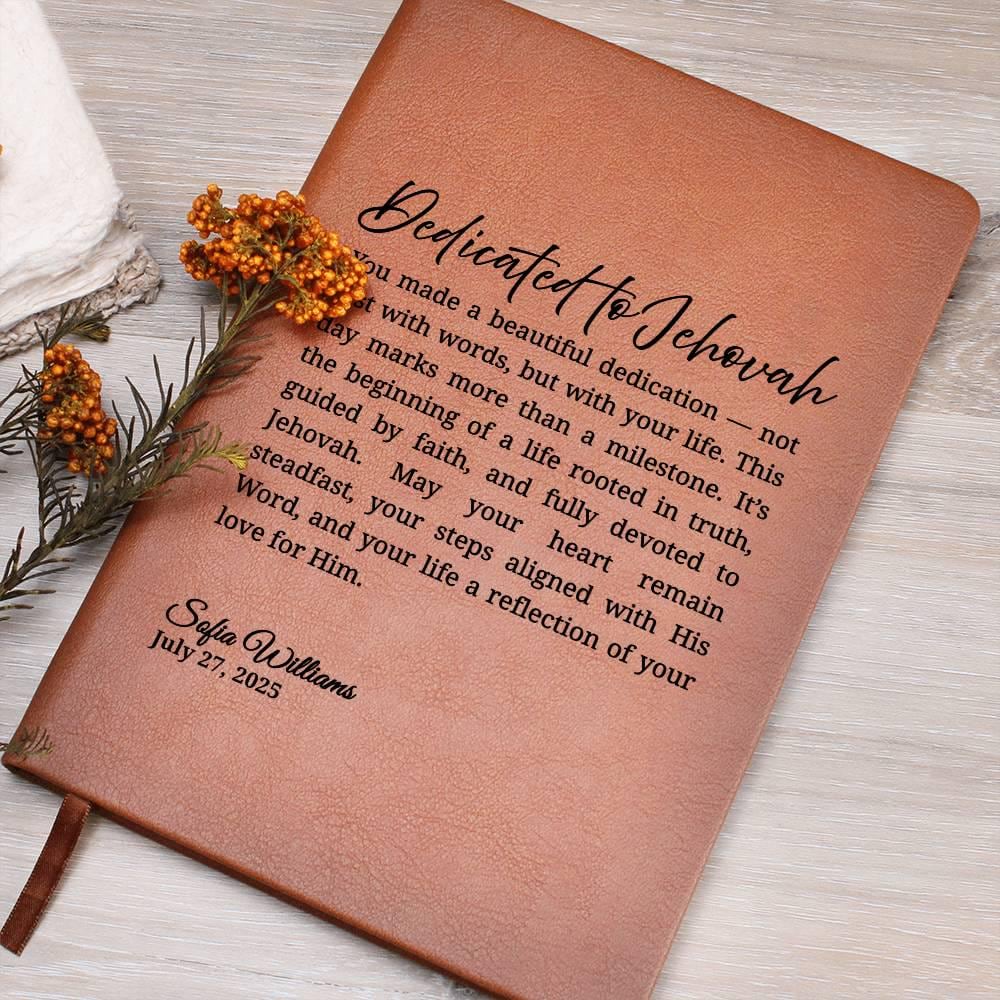 Dedicated to Jehovah
You made a beautiful dedication — not
with words, but with your life. This
day marks more than a milestone. It’s
the beginning of a life rooted in truth,
guided by faith, and fully devoted to
Jehovah. May your heart remain
steadfast, your steps aligned with His
Word, and your life a reflection of your
love for Him.
Sofia Williams
July 27, 2025